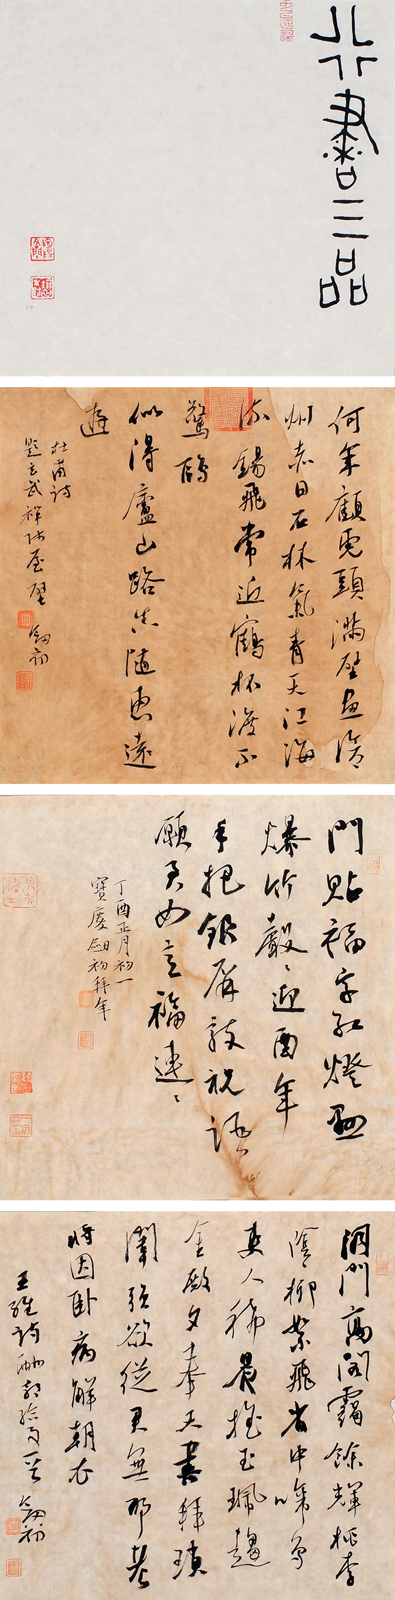 行書三品
何年顧虎頭滿壁畫滄
州赤日石林氣青天江海
流錫飛常近鶴杯渡不
驚鷗
似得廬山路真隨惠遠
遊
杜甫詩
題玄武禪師屋壁 劍初
門貼福字紅燈懸
爆竹聲〻迎酉年
手把銀屏敲祝語
願君如意福連〻
丁酉正月初一
寶慶劍初拜年
洞門高閣靄餘輝桃李
陰〻柳絮飛省中啼鳥
吏人稀晨搖玉珮趨
金殿夕奉天書拜瑣
闈強欲從君無那老
將因臥病解朝衣
王維詩酬郭給事 劍初